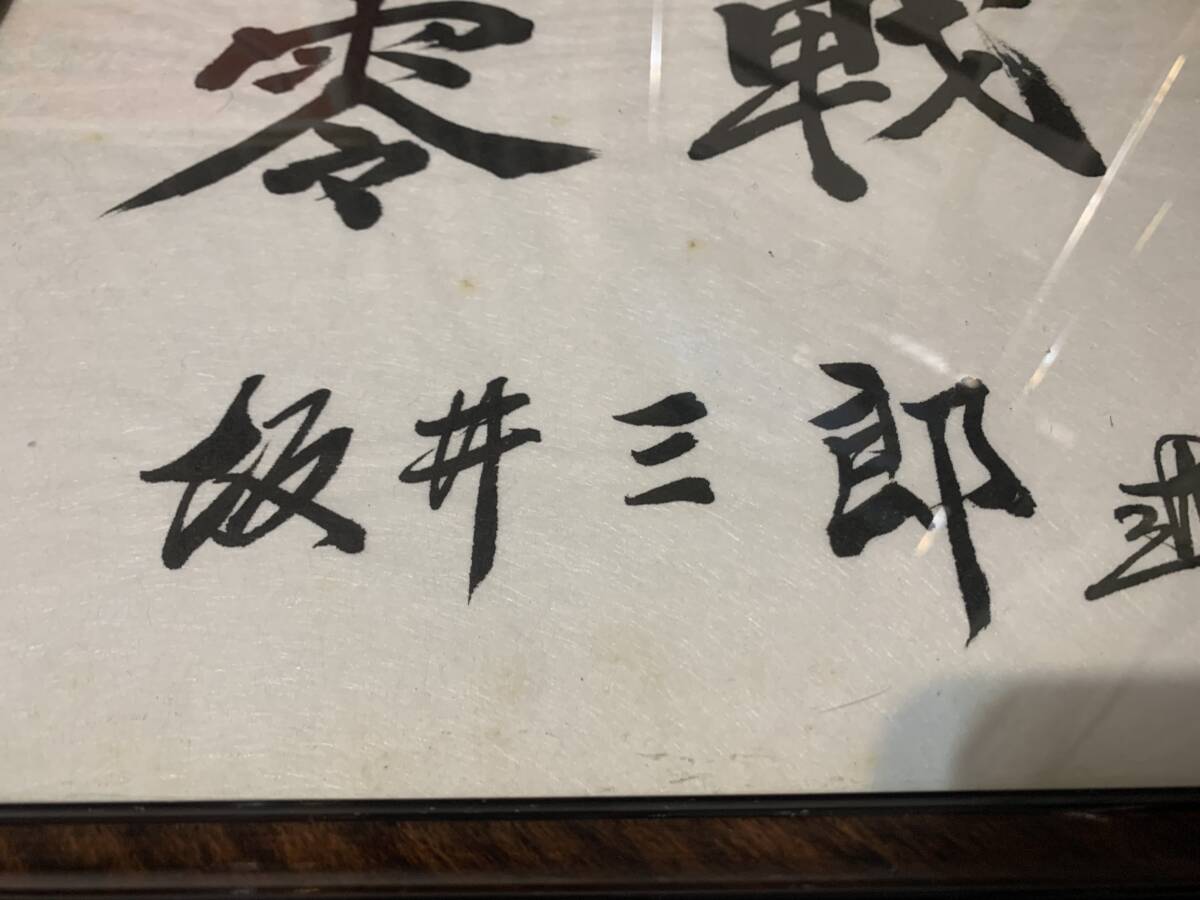 零戦
坂井三郎